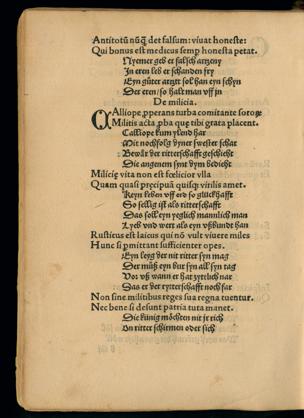 Antitotū nūq̄ det falsum: viuat honeste:
Qui bonus est medicus semp honesta petat.
Nyemer geb er falsch artzeny
In eren leb er schanden fry
Eyn gůter artzet sol han eyn schyn
Der eren / so halt man vff in
De milicia.
CAlliope pperans turba comitante sororum
Militis acta pba que tibi grata placent.
Calliope kum ylend har
Mit nochfolg dyner swester schar
Bewär der ritterschafft geschicht
Die angenem synt dym gedicht
Militie vita non est foelicior vlla
Quam quasi precipuā quisq virilis amet.
Keyn leben vff erd so glückhafft
So selig ist als ritterschafft
Das soll eyn yeglich mannlich man
Lyeb vnd wert als eyn vßkunde han
Rusticus est laicus qui nō vult viuere miles
Hunc si pmittant sufficienter opes.
Eyn leyg der nit ritter syn mag
Der můß eyn bur syn all syn tag
Vor vß wann er hat zytlich nar
Das er der rytterschafft noch far
Non sine militibus reges sua regna tuentur.
Nec bene si desunt patria tuta manet.
Die künig möchten nit ir rich
On ritter schirmen oder sich